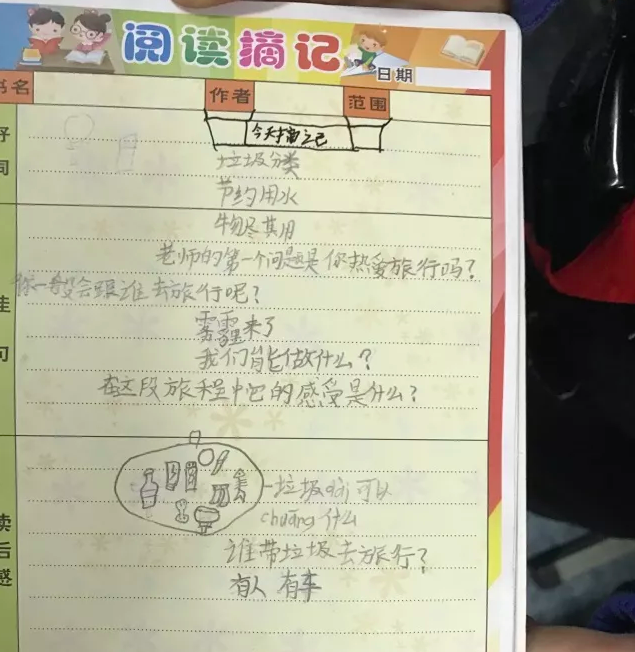 阅读摘记
日期
书名 作者 范围
好
今天摘之己
垃圾分类
词
节约用水
物尽其用
老师的第一个问题是你热爱旅行吗?
你一般会跟谁去旅行呢?
佳
雾霾来了
句
我们能做什么?
在这段旅程中它的感受是什么?
垃圾 可以
chuāng 什么
读
后
感
谁带垃圾去旅行?
有人 有车